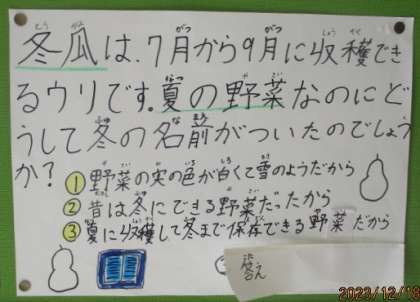 冬瓜は、7月から9月に収穫でき
るウリです。夏の野菜なのにど
うして冬の名前がついたのでしょう
か?
① 野菜の実の色が白くて雪のようだから
② 昔は冬にできる野菜だったから
③ 夏に収穫して冬まで保存できる野菜だから
答え
2023/12/18